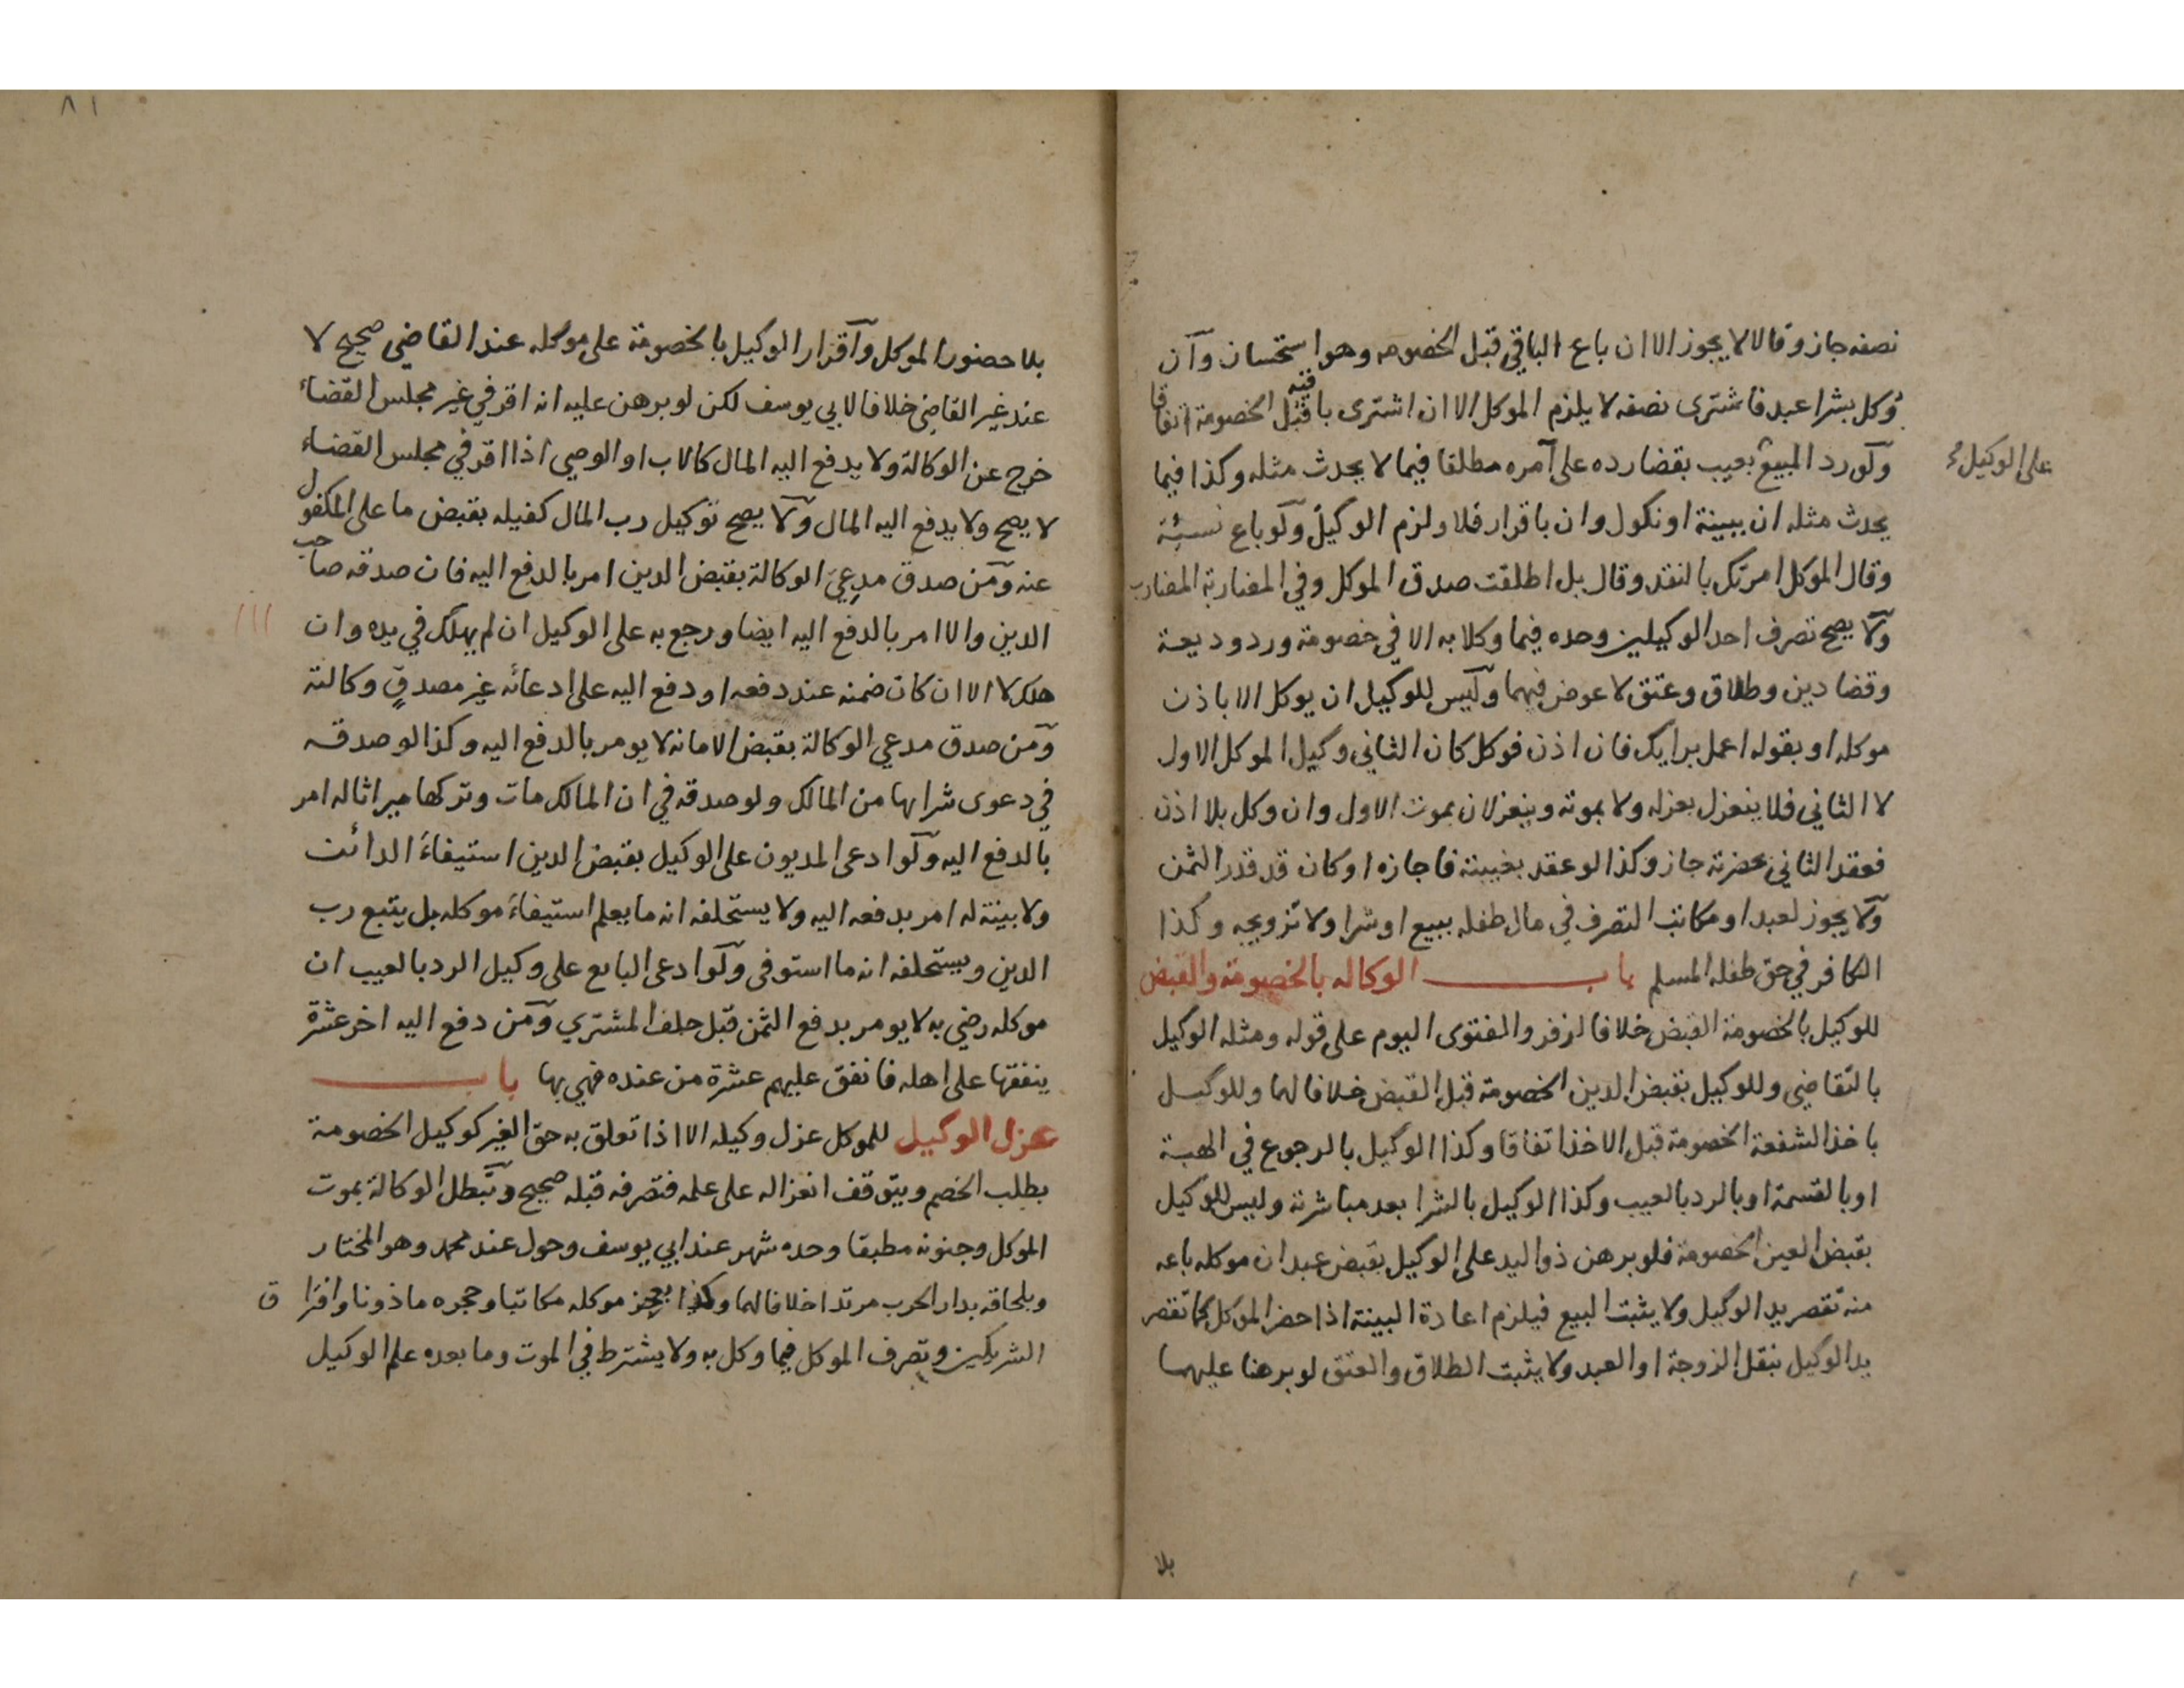 نصفه جاز وقالا لا يجوز الا ان باع الباقي قبل الخصومه وهو استحسان وان
وكل بشرا عبد فاشترى نصفه لا يلزم الموكل الا ان اشترى باقيه قبل الخصومة اتفاقا
ولو رد المبيع بعيب بقضا رده على آمره مطلقا فيما لا يحدث مثله وكذا فيما
على الوكيل
يحدث مثله ان ببينة او نكول وان باقرار فلا ولزم الوكيل ولو باع نسيئة
وقال الموكل امرتك بالنقد وقال بل اطلقت صدق الموكل وفي المضاربة المضارب
ولا يصح تصرف احد الوكيلين وحده فيما وكلا به الا في خصومة ورد وديعة
وقضا دين وطلاق وعتق لا عوض فيهما وليس للوكيل ان يوكل الا باذن
موكله او بقوله اعمل برايك فان اذن فوكل كان الثاني وكيل الموكل الاول
لا الثاني فلا ينعزل بعزله ولا بموته وينعزلان بموت الاول وان وكل بلا اذن
فعقد الثاني بحضرته جاز وكذا لو عقد بغيبته فاجازه او كان قد قدر الثمن
ولا يجوز لعبد او مكاتب التصرف في مال طفله ببيع او شرا ولا تزويجه وكذا
الكافر في حق طفله المسلم باب الوكاله بالخصومة والقبض
للوكيل بالخصومة القبض خلافا لزفر والفتوى اليوم على قوله ومثله الوكيل
بالتقاضي وللوكيل بقبض الدين الخصومة قبل القبض خلافا لهما وللوكيل
باخذ الشفعة الخصومة قبل الاخذ اتفاقا وكذا الوكيل بالرجوع في الهبة
او بالقسمة او بالرد بالعيب وكذا الوكيل بالشرا بعد مباشرته وليس للوكيل
بقبض العين الخصومة فلو برهن ذو اليد على الوكيل بقبض عبد ان موكله باعه
منه تقصر يد الوكيل ولا يثبت البيع فيلزم اعادة البينة اذا حضر الموكل كما تقصر
يد الوكيل بنقل الزوجة او العبد ولا يثبت الطلاق والعتق لو برهنا عليهما
بلا
٨١
بلا حضور الموكل واقرار الوكيل بالخصومة على موكله عند القاضي صحيح لا
عند غير القاضي خلافا لابي يوسف لكن لو برهن عليه انه اقر في غير مجلس القضاء
خرج عن الوكالة ولا يدفع اليه المال كالاب او الوصي اذا اقر في مجلس القضاء
لا يصح ولا يدفع اليه المال ولا يصح توكيل رب المال كفيله بقبض ما على المكفول
عنه ومن صدق مدعي الوكالة بقبض الدين امر بالدفع اليه فان صدقه صاحب
الدين والا امر بالدفع اليه ايضا ورجع به على الوكيل ان لم يهلك في يده وان
هلك لا الا ان كان ضمنه عند دفعه او دفع اليه على ادعائه غير مصدق وكالته
ومن صدق مدعي الوكالة بقبض الامانه لا يومر بالدفع اليه وكذا لو صدقه
في دعوى شرايها من المالك ولو صدقه في ان المالك مات وتركها ميراثا له امر
بالدفع اليه ولو ادعى المديون على الوكيل بقبض الدين استيفاء الدائن
ولا بينة له امر بدفعه اليه ولا يستحلفه انه ما يعلم استيفاء موكله بل يتبع رب
الدين ويستحلفه انه ما استوفى ولو ادعى البايع على وكيل الرد بالعيب ان
موكله رضي به لا يومر بدفع الثمن قبل حلف المشتري ومن دفع اليه اخر عشرة
ينفقها على اهله فانفق عليهم عشرة من عنده فهي بها باب
عزل الوكيل للموكل عزل وكيله الا اذا تعلق به حق الغير كوكيل الخصومة
بطلب الخصم ويتوقف انعزاله على علمه فتصرفه قبله صحيح وتبطل الوكالة بموت
الموكل وجنونه مطبقا وحده شهر عند ابي يوسف وحول عند محمد وهو المختار
وبلحاقه بدار الحرب مرتدا خلافا لهما وكذا بعجز موكله مكاتبا وحجره ماذونا وافترا ق
الشريكين وتصرف الموكل فيما وكل به ولا يشترط في الموت وما بعده علم الوكيل